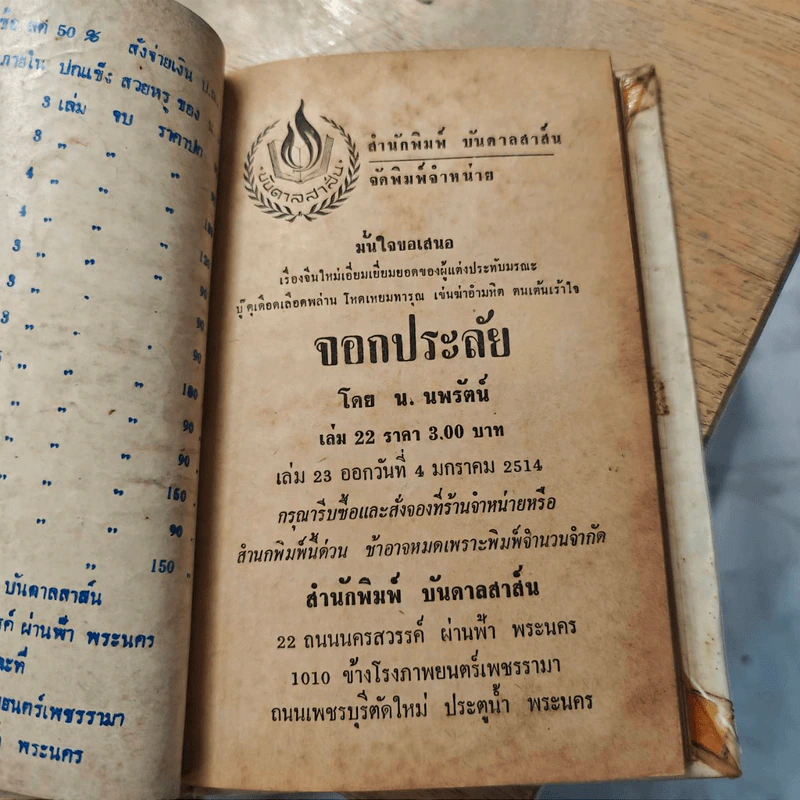 ซื้อ ลด 50 % สั่งจ่ายเงิน
ภายใน ปกแข็ง สวยหรู ของ
3 เล่ม จบ ราคาปก
3 " "
4 " "
4 " "
3 " "
3 " "
3 " "
" " 90
" " 180
" " 90
" " 90
" " 150
" " 90
" 150
บันดาลสาส์น
ผ่านฟ้า พระนคร
พระนคร
บันดาลสาส์น
สำนักพิมพ์ บันดาลสาส์น
จัดพิมพ์จำหน่าย
มั่นใจขอเสนอ
เรื่องจีนใหม่เอี่ยมเยี่ยมยอดของผู้แต่งประทับมรณะ
บู๊ดุเดือดเลือดพล่าน โหดเหยมทารุณ เข่นฆ่าอำมหิต ตนเต้นเร้าใจ
จอกประลัย
โดย น. นพรัตน์
เล่ม 22 ราคา 3.00 บาท
เล่ม 23 ออกวันที่ 4 มกราคม 2514
กรุณารีบซื้อและสั่งจองที่ร้านจำหน่ายหรือ
สำนกพิมพ์นี้ด่วน ช้าอาจหมดเพราะพิมพ์จำนวนจำกัด
สำนักพิมพ์ บันดาลสาส์น
22 ถนนนครสวรรค์ ผ่านฟ้า พระนคร
1010 ข้างโรงภาพยนตร์เพชรรามา
ถนนเพชรบุรีตัดใหม่ ประตูน้ำ พระนคร